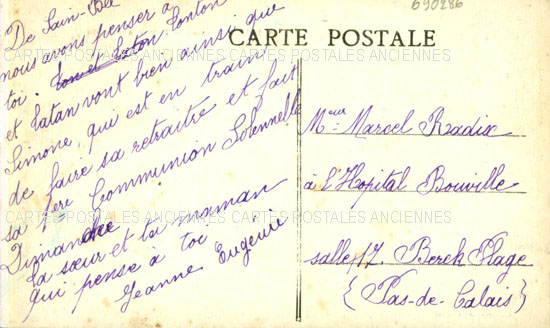 690286
CARTE POSTALE
De Sain-Ble
nous avons penser a
toi. Tonton
et Tatan vont bien ainsi que
Simone, qui est en train
de faire sa retraitre et fait
sa 1ere Communion Solennelle
Dimanche
ta sœur et ta maman
qui pense à toi
Jeanne Eugenie
Meur Marcel Radix
à l'Hopital Bouville
salle 17. Berck Plage
(Pas-de-Calais)
CARTES POSTALES ANCIENNES CARTES POSTALES ANCIENNES
CARTES POSTALES ANCIENNES CARTES POSTALES ANCIENNES